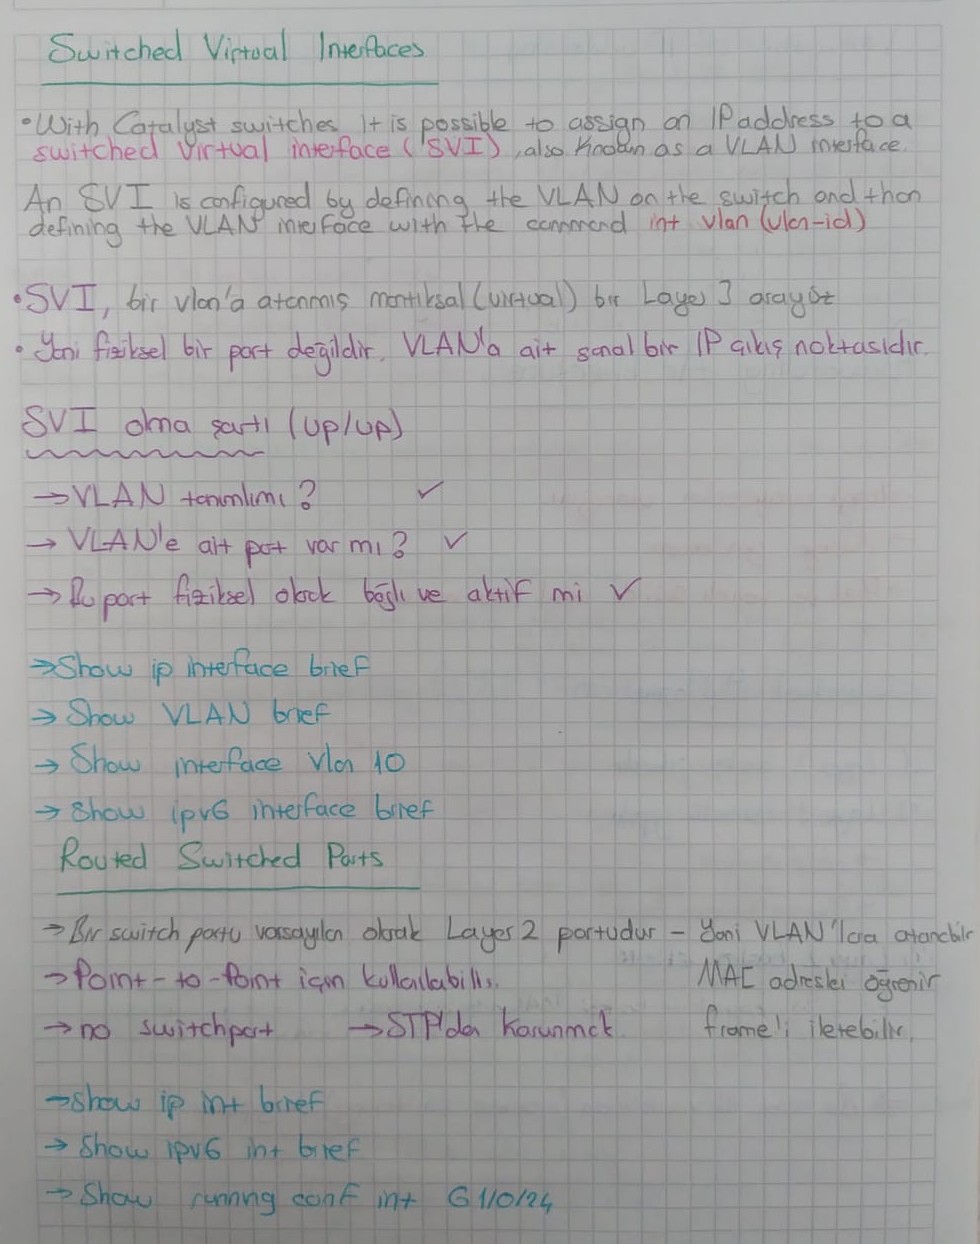 Switched Virtual Interfaces
• With Catalyst switches it is possible to assign an IP address to a
switched virtual interface (SVI), also known as a VLAN interface.
An SVI is configured by defining the VLAN on the switch and then
defining the VLAN interface with the command int vlan (vlan-id)
• SVI, bir vlan'a atanmış mantıksal (virtual) bir Layer 3 arayüz
• Yani fiziksel bir port değildir. VLAN'a ait sanal bir IP çıkış noktasıdır.
SVI olma şartı (up/up)
→ VLAN tanımlımı? ✓
→ VLAN'e ait port var mı? ✓
→ Bu port fiziksel olarak bağlı ve aktif mi ✓
→ Show ip interface brief
→ Show VLAN brief
→ Show interface vlan 10
→ Show ipv6 interface brief
Routed Switched Ports
→ Bir switch portu varsayılan olarak Layer 2 portudur - Yani VLAN'lara atanabilir
→ Point-to-Point için kullanılabilir. MAC adresleri öğrenir
→ no switchport → STP'den korunmak. frame'i iletebilir.
→ show ip int brief
→ Show ipv6 int brief
→ Show running conf int G1/0/24